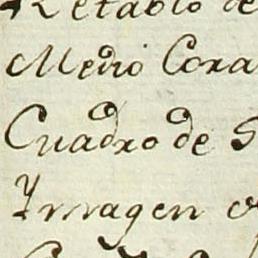 Retablo de
Medio Cora
Cuadro de S
Ymagen